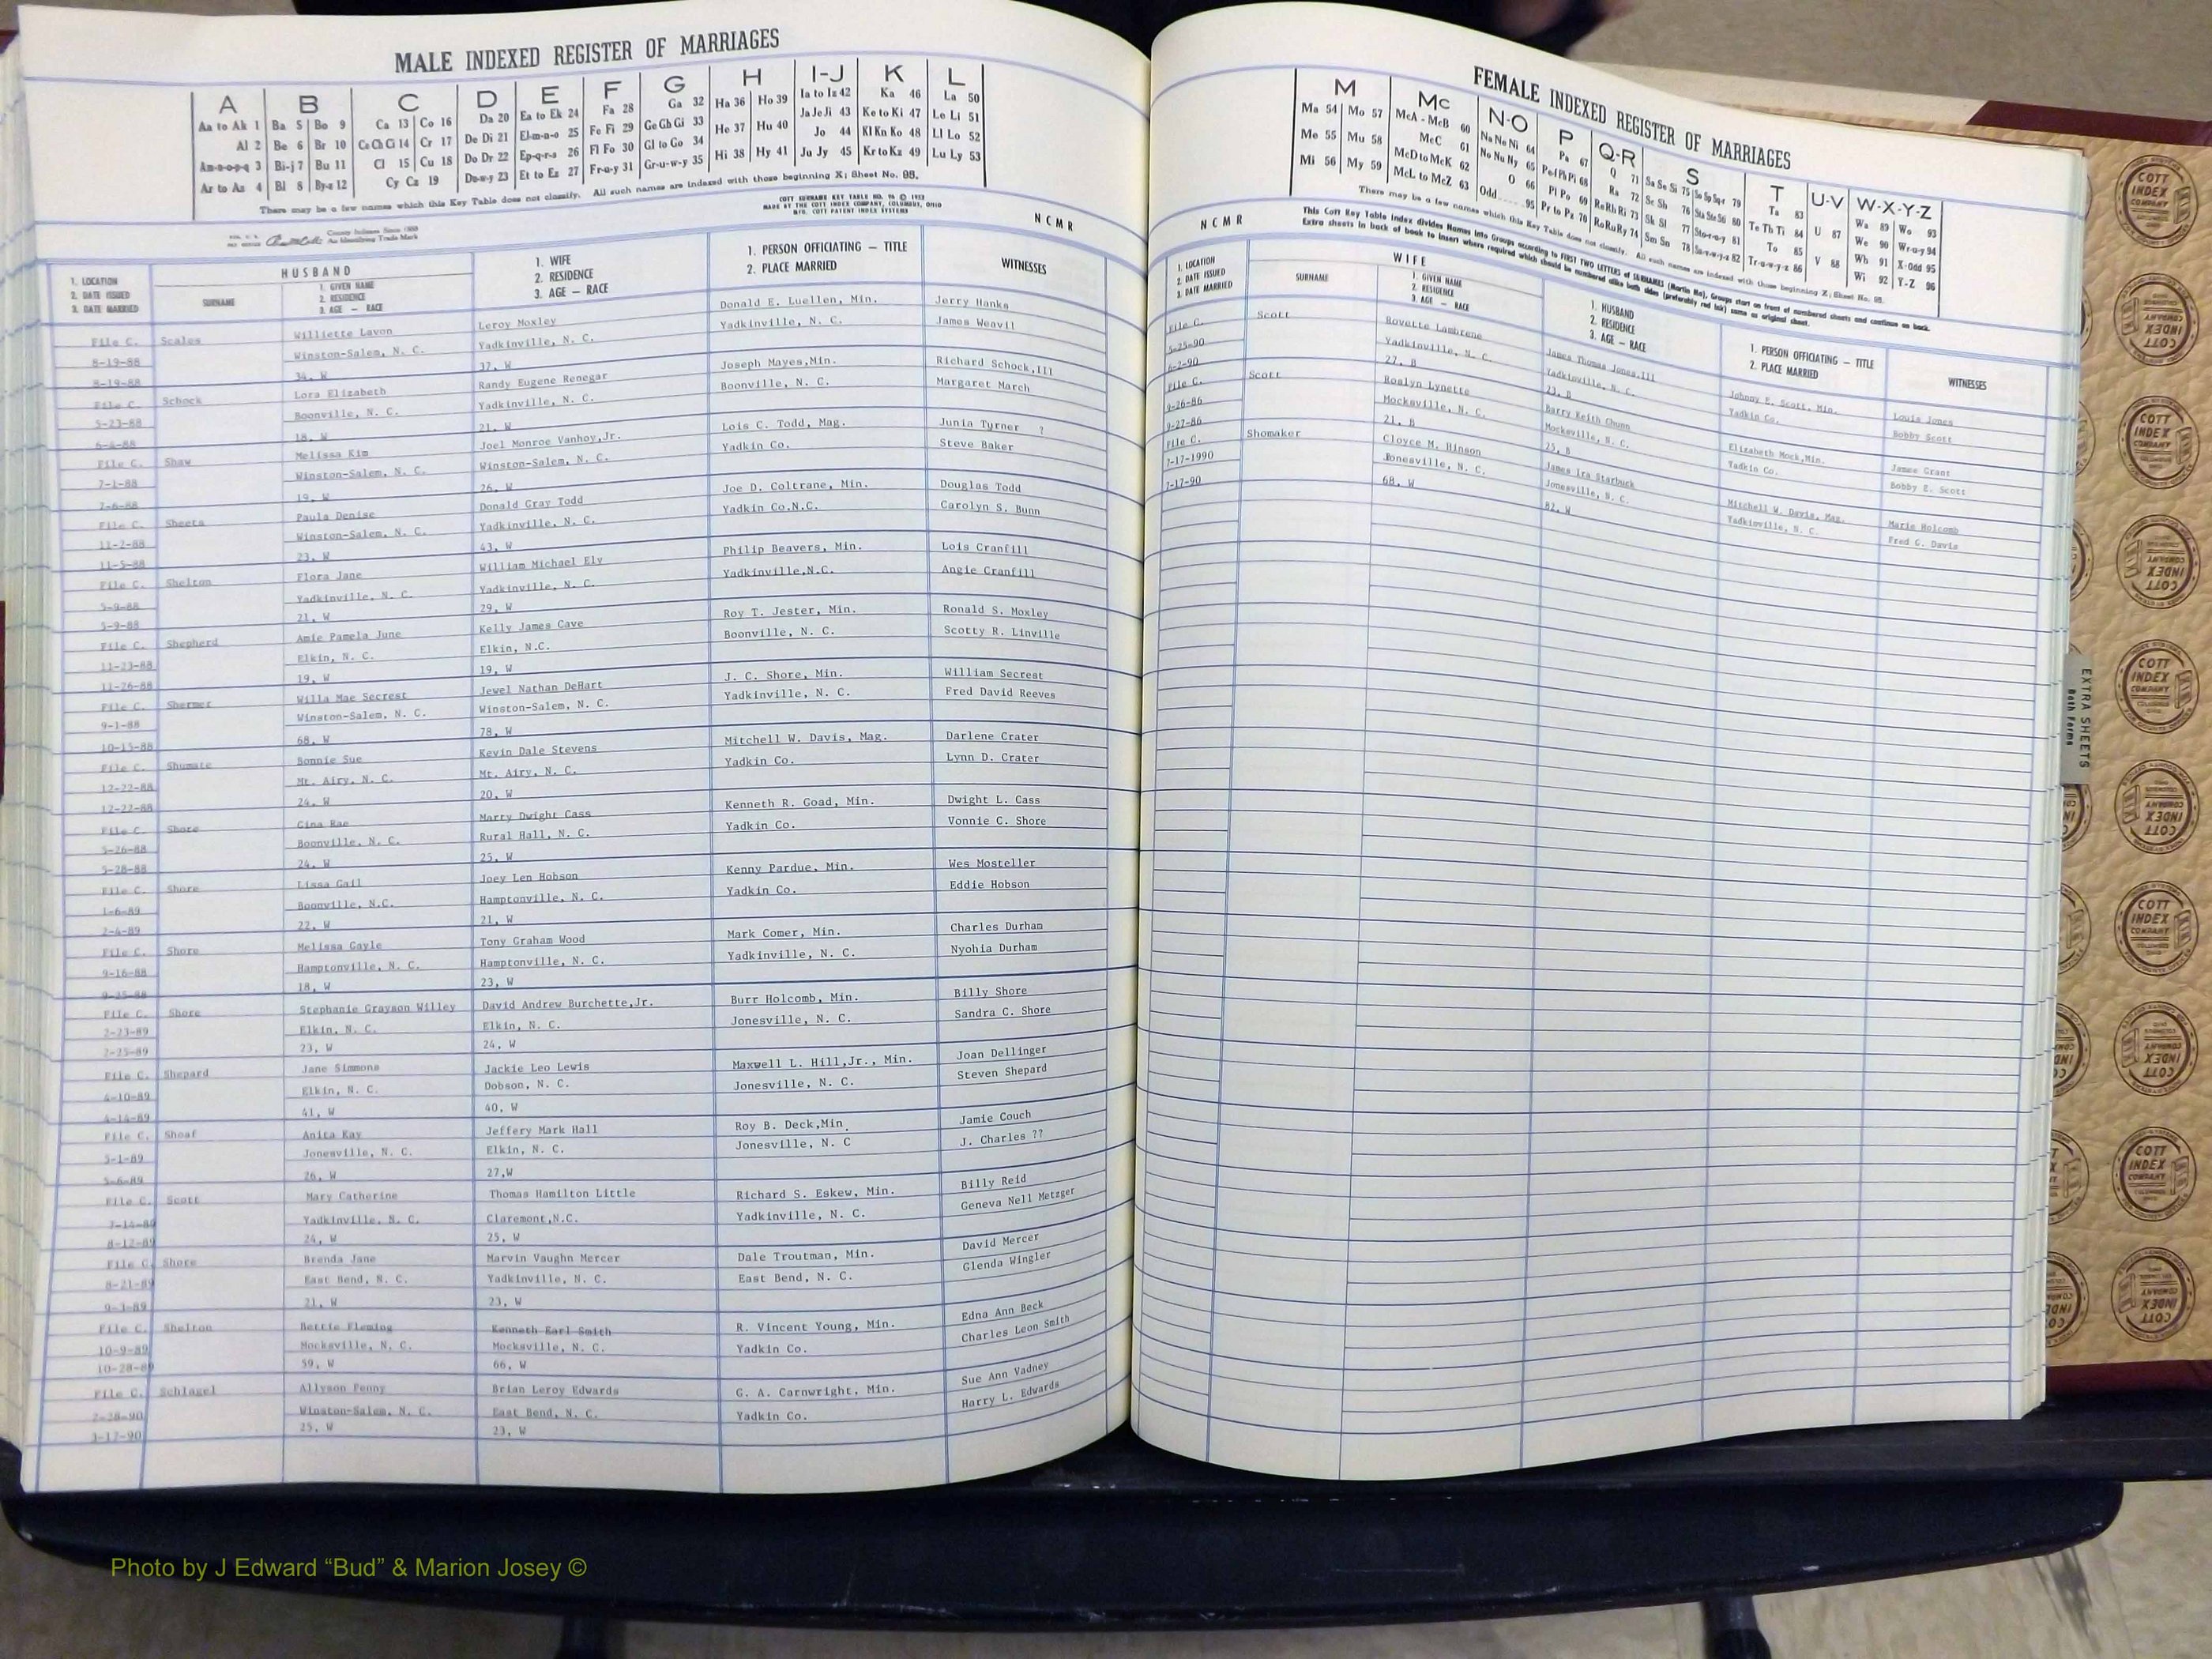 MALE INDEXED REGISTER OF MARRIAGES
A B C D E F G H I-J K L
Aa to Ak 1 Ba 5 Bo 9 Ca 13 Co 16 Da 20 Ea to Ek 24 Fa 28 Ga 32 Ha 36 Ho 39 Ia to Iz 42 Ka 46 La 50
Al 2 Be 6 Br 10 Ce Ch Ci 14 Cr 17 De Di 21 El-m-n-o 25 Fe Fi 29 Ge Gh Gi 33 He 37 Hu 40 Ja Je Ji 43 Ke to Ki 47 Le Li 51
Am-n-o-p-q 3 Bi-j 7 Bu 11 Cl 15 Cu 18 Do Dr 22 Ep-q-r-s 26 Fl Fo 30 Gl to Go 34 Hi 38 Hy 41 Jo 44 Kl Kn Ko 48 Ll Lo 52
Ar to Az 4 Bl 8 By-z 12 Cy Cz 19 Du-w-y 23 Et to Ez 27 Fr-u-y 31 Gr-u-w-y 35 Ju Jy 45 Kr to Kz 49 Lu Ly 53
There may be a few names which this Key Table does not classify. All such names are indexed with those beginning X; Sheet No. 98.
COTT SURNAME KEY TABLE NO.
MADE BY THE COTT INDEX COMPANY, COLUMBUS, OHIO
MFG. COTT PATENT INDEX SYSTEMS
County Indexes Since 1888
An Identifying Trade Mark
N C M R
1. LOCATION
2. DATE ISSUED
3. DATE MARRIED
HUSBAND
SURNAME
1. GIVEN NAME
2. RESIDENCE
3. AGE — RACE
1. WIFE
2. RESIDENCE
3. AGE — RACE
1. PERSON OFFICIATING — TITLE
2. PLACE MARRIED
WITNESSES
File C. Scales Williette Lavon Leroy Moxley Donald E. Luellen, Min. Jerry Hanks
8-19-88 Winston-Salem, N. C. Yadkinville, N. C. Yadkinville, N. C. James Weavil
8-19-88 34, W 37, W
File C. Schock Lora Elizabeth Randy Eugene Renegar Joseph Mayes,Min. Richard Schock,III
5-23-88 Boonville, N. C. Yadkinville, N. C. Boonville, N. C. Margaret March
6-4-88 18, W 21, W
File C. Shaw Melissa Kim Joel Monroe Vanhoy,Jr. Lois C. Todd, Mag. Junia Tyrner ?
7-1-88 Winston-Salem, N. C. Winston-Salem, N. C. Yadkin Co. Steve Baker
7-6-88 19, W 26, W
File C. Sheets Paula Denise Donald Gray Todd Joe D. Coltrane, Min. Douglas Todd
11-2-88 Winston-Salem, N. C. Yadkinville, N. C. Yadkin Co.N.C. Carolyn S. Bunn
11-5-88 23, W 43, W
File C. Shelton Flora Jane William Michael Ely Philip Beavers, Min. Lois Cranfill
5-9-88 Yadkinville, N. C. Yadkinville, N. C. Yadkinville,N.C. Angie Cranfill
5-9-88 21, W 29, W
File C. Shepherd Amie Pamela June Kelly James Cave Roy T. Jester, Min. Ronald S. Moxley
11-23-88 Elkin, N. C. Elkin, N.C. Boonville, N. C. Scotty R. Linville
11-26-88 19, W 19, W
File C. Shermer Willa Mae Secrest Jewel Nathan DeHart J. C. Shore, Min. William Secrest
9-1-88 Winston-Salem, N. C. Winston-Salem, N. C. Yadkinville, N. C. Fred David Reeves
10-15-88 68, W 78, W
File C. Shumate Bonnie Sue Kevin Dale Stevens Mitchell W. Davis, Mag. Darlene Crater
12-22-88 Mt. Airy, N. C. Mt. Airy, N. C. Yadkin Co. Lynn D. Crater
12-22-88 24, W 20, W
File C. Shore Gina Rae Marty Dwight Cass Kenneth R. Goad, Min. Dwight L. Cass
5-26-88 Boonville, N. C. Rural Hall, N. C. Yadkin Co. Vonnie C. Shore
5-28-88 24, W 25, W
File C. Shore Lissa Gail Joey Len Hobson Kenny Pardue, Min. Wes Mosteller
1-6-89 Boonville, N.C. Hamptonville, N. C. Yadkin Co. Eddie Hobson
2-4-89 22, W 21, W
File C. Shore Melissa Gayle Tony Graham Wood Mark Comer, Min. Charles Durham
9-16-88 Hamptonville, N. C. Hamptonville, N. C. Yadkinville, N. C. Nyohia Durham
9-25-88 18, W 23, W
File C. Shore Stephanie Grayson Willey David Andrew Burchette,Jr. Burr Holcomb, Min. Billy Shore
2-23-89 Elkin, N. C. Elkin, N. C. Jonesville, N. C. Sandra C. Shore
2-25-89 23, W 24, W
File C. Shepard Jane Simmons Jackie Leo Lewis Maxwell L. Hill,Jr., Min. Joan Dellinger
4-10-89 Elkin, N. C. Dobson, N. C. Jonesville, N. C. Steven Shepard
4-14-89 41, W 40, W
File C. Shoaf Anita Kay Jeffery Mark Hall Roy B. Deck,Min. Jamie Couch
5-1-89 Jonesville, N. C. Elkin, N. C. Jonesville, N. C J. Charles ??
5-6-89 26, W 27,W
File C. Scott Mary Catherine Thomas Hamilton Little Richard S. Eskew, Min. Billy Reid
7-14-89 Yadkinville, N. C. Claremont,N.C. Yadkinville, N. C. Geneva Nell Metzger
8-12-89 24, W 25, W
File C. Shore Brenda Jane Marvin Vaughn Mercer Dale Troutman, Min. David Mercer
8-21-89 East Bend, N. C. Yadkinville, N. C. East Bend, N. C. Glenda Wingler
9-3-89 21, W 23, W
File C. Shelton Bettie Fleming Kenneth Earl Smith R. Vincent Young, Min. Edna Ann Beck
10-9-89 Mocksville, N. C. Mocksville, N. C. Yadkin Co. Charles Leon Smith
10-28-89 59, W 66, W
File C. Schlagel Allyson Penny Brian Leroy Edwards G. A. Carnwright, Min. Sue Ann Vadney
2-28-90 Winston-Salem, N. C. East Bend, N. C. Yadkin Co. Harry L. Edwards
3-17-90 25, W 23, W
FEMALE INDEXED REGISTER OF MARRIAGES
M Mc N-O P Q-R S T U-V W-X-Y-Z
Ma 54 Mo 57 McA - McB 60 Na Ne Ni 64 Pa 67 Q 71 Sa Se Si 75 So Sp Sq-r 79 Ta 83 U 87 Wa 89 Wo 93
Me 55 Mu 58 McC 61 No Nu Ny 65 Pe-f Ph Pi 68 Ra 72 Sc Sh 76 Sta Ste Sti 80 Te Th Ti 84 V 88 We 90 Wr-u-y 94
Mi 56 My 59 McD to McK 62 O 66 Pl Po 69 Re Rh Ri 73 Sk Sl 77 Sto-r-u-y 81 To 85 Wh 91 X-odd 95
McL to McZ 63 Odd 95 Pr to Pz 70 Ro Ru Ry 74 Sm Sn 78 Su-v-w-y-z 82 Tr-u-w-y-z 86 Wi 92 Y-Z 96
There may be a few names which this Key Table does not classify. All such names are indexed with those beginning X; Sheet No. 98.
N C M R
This Cott Key Table Index divides Names into Groups according to FIRST TWO LETTERS of SURNAMES (Martin Ma), Groups start on front of numbered sheets and continue on back.
Extra sheets in back of book to insert where required which should be numbered alike both sides (preferably red ink) same as original sheet.
1. LOCATION
2. DATE ISSUED
3. DATE MARRIED
WIFE
SURNAME
1. GIVEN NAME
2. RESIDENCE
3. AGE — RACE
1. HUSBAND
2. RESIDENCE
3. AGE — RACE
1. PERSON OFFICIATING — TITLE
2. PLACE MARRIED
WITNESSES
File C. Scott Rovette Lambrene James Thomas Jones,III Johnny E. Scott, Min. Louis Jones
5-25-90 Yadkinville, N. C. Yadkinville, N. C. Yadkin Co. Bobby Scott
6-2-90 27, B 23, B
File C. Scott Roslyn Lynette Barry Keith Chunn Elizabeth Mock,Min. James Grant
9-26-86 Mocksville, N. C. Mocksville, N. C. Yadkin Co. Bobby E. Scott
9-27-86 21, B 25, B
File C. Shomaker Cloyce M. Hinson James Ira Starbuck Mitchell W. Davis, Mag. Marie Holcomb
7-17-1990 Jonesville, N. C. Jonesville, N. C. Yadkinville, N. C. Fred C. Davis
7-17-90 68, W 82, W
EXTRA SHEETS
Both Forms
COTT INDEX COMPANY
Photo by J Edward “Bud” & Marion Josey ©